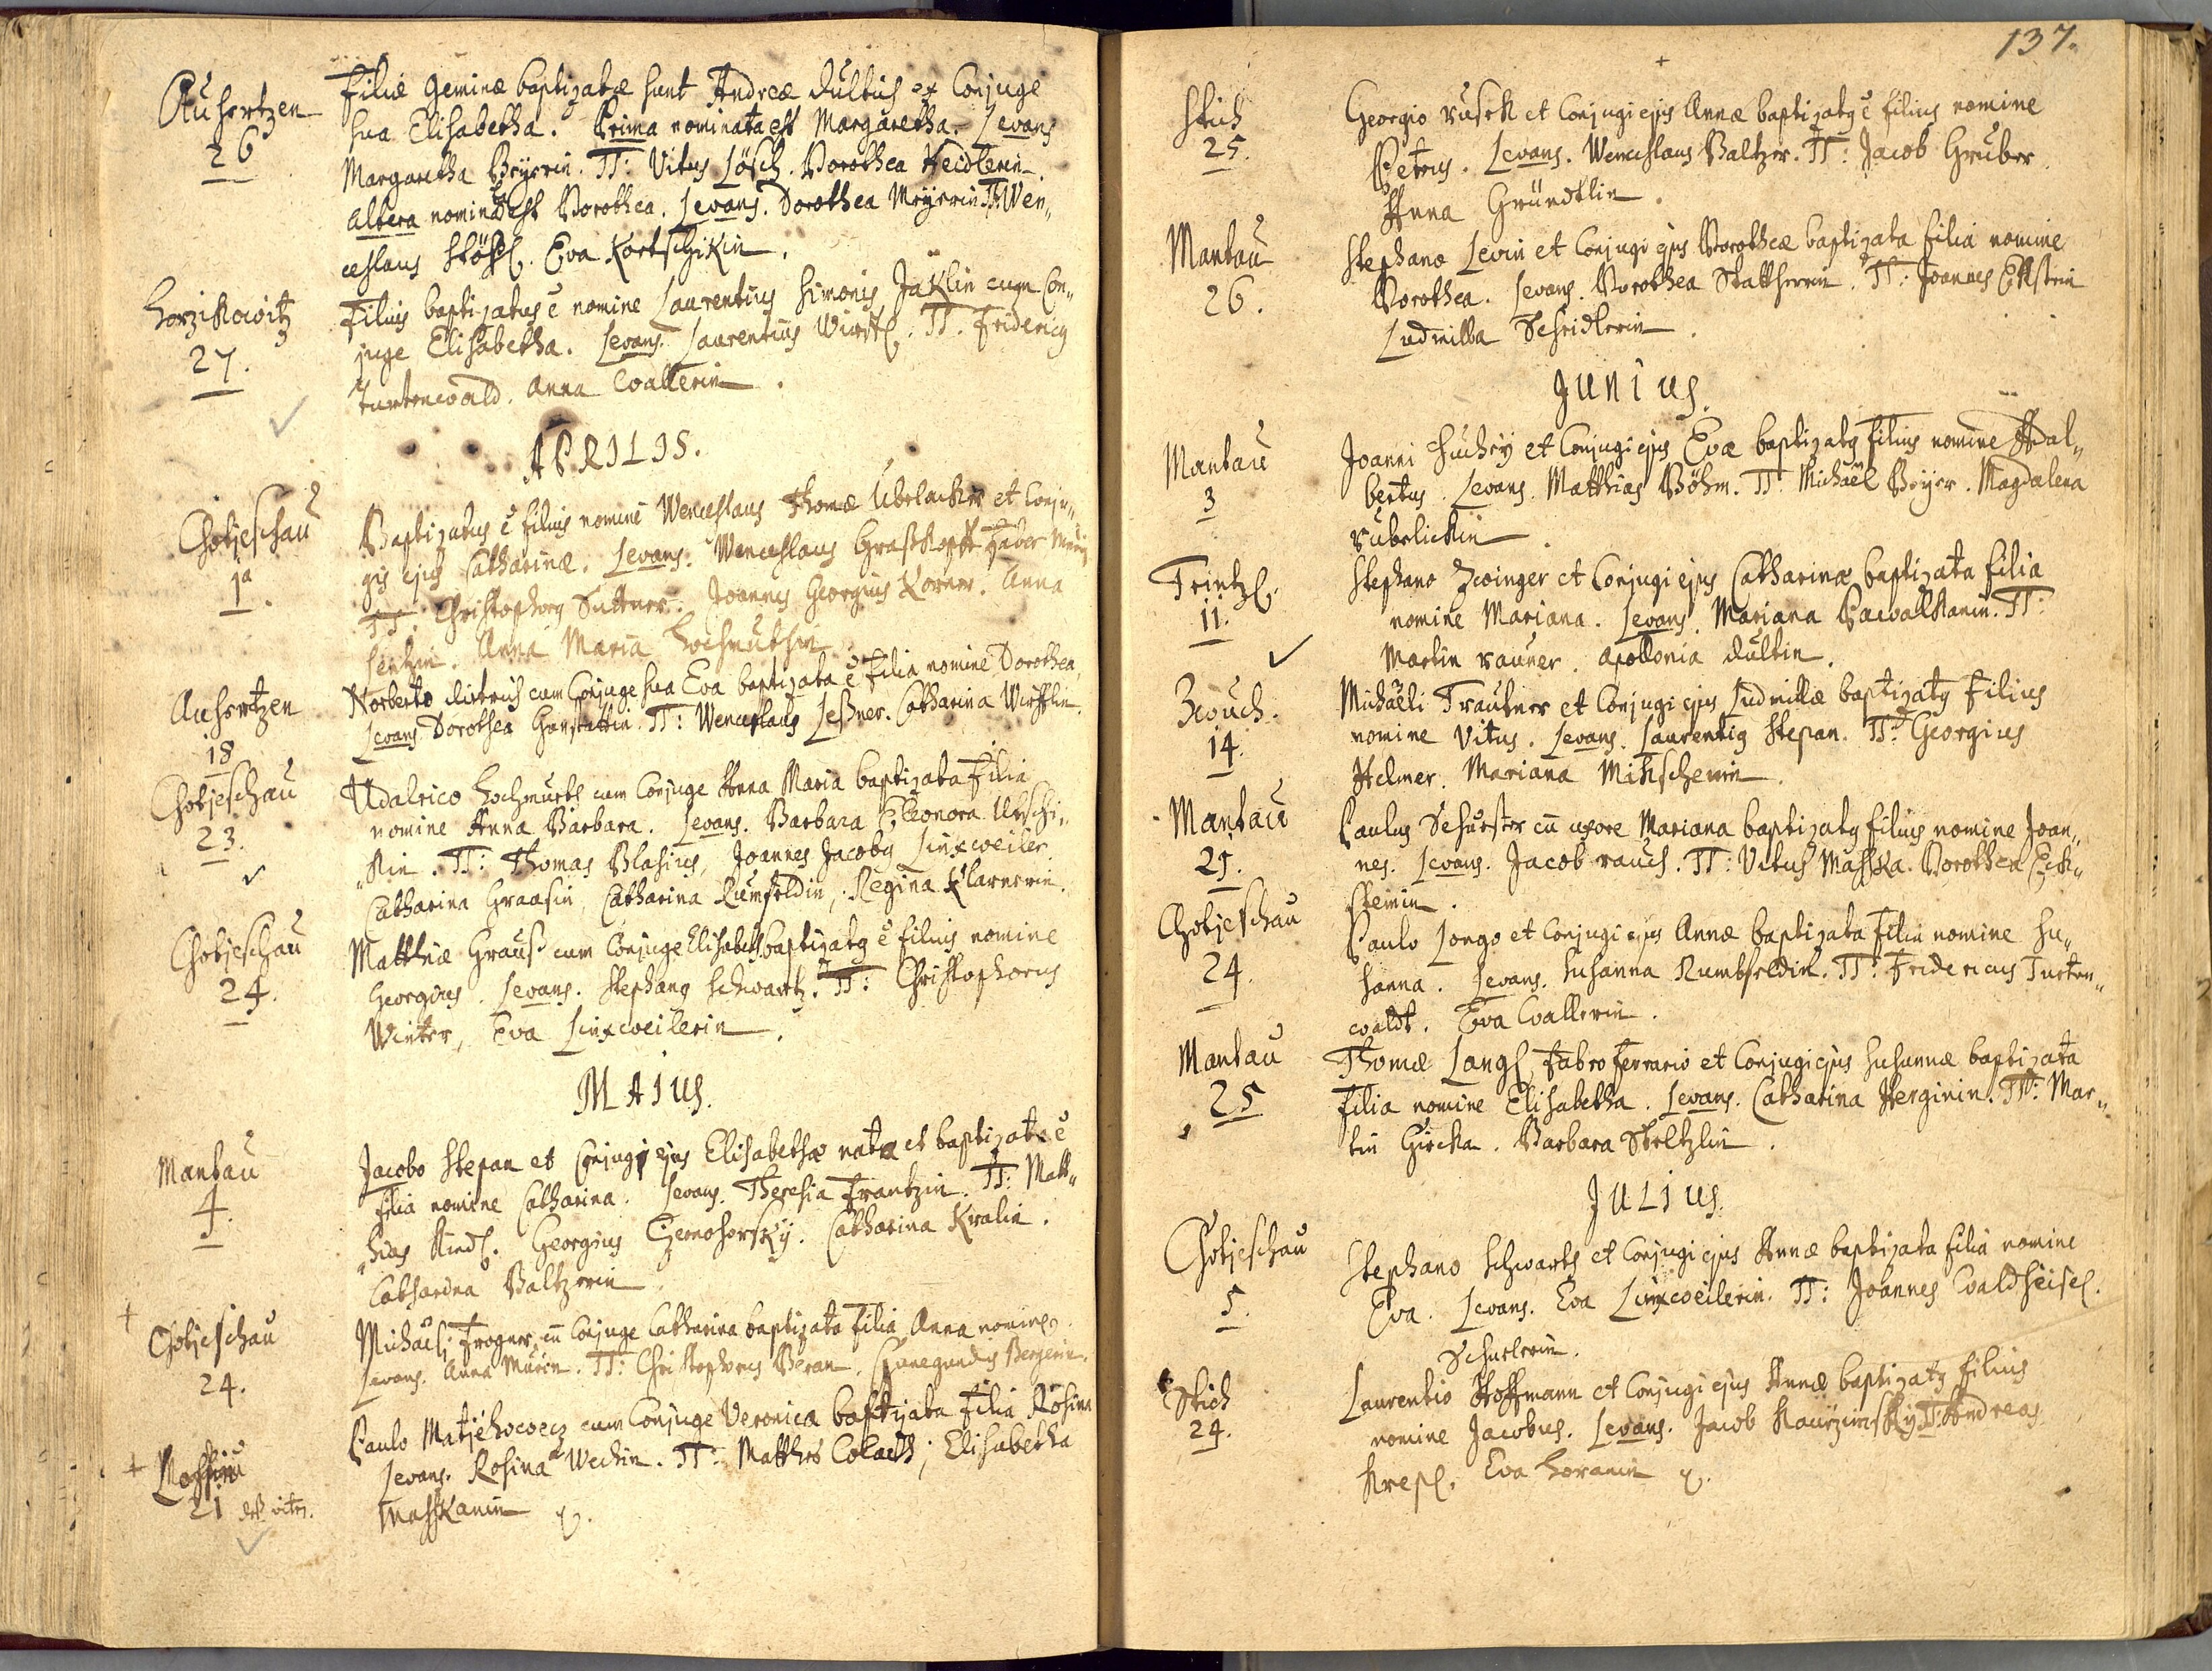 Auhertzen
26
Filiæ geminæ baptizatæ sunt Andreæ dultus ex Conjuge
sua Elisabetha. Prima nominata est Margaretha. Levans
Margaretha Beÿrrin. TT: Vitus Lösch. Dorothea Heidlerin.
Altera nominata est Dorothea. Levans. Dorothea Meÿrrin TT: Wen„
ceslaus Stöhsl. Eva Kortschikin.
Horzikowitz
27.
Filius baptizatus ē nomine Laurentius Simonis Jaklin cum Con„
juge Elisabetha. Levans. Laurentius Wirstl. TT. Fridericus
Turtenwald. Anna Wallerin.
APRILIS.
Chotjeschau
1a.
Baptizatus ē filius nomine Wenceslaus Thomæ Ubelacker et Conju„
gis ejus Catharinæ. Levans. Wenceslaus Graßkopff
TT: Christophorus Suttner. Joannes Georgius Korner. Anna
Anna Maria Hochmuthin
Auhertzen
18
Norberto dietrich cum Conjuge sua Eva baptizata ē filia nomine Dorothea,
Levans Dorothea TT: Wenceslaus Leßner. Catharina Wirstlin.
Chotjeschau
23.
Udalrico Hochmuth cum Conjuge Anna Maria baptizata filia
nomine Anna Barbara. Levans. Barbara Eleonora Utschi„
„kin. TT: Thomas Blasius, Joannes Jacobus Linxweiler
Catharina Graasin, Catharina Rumfeldin, Regina Klarnerin.
Chotjeschau
24.
Matthiæ Grauß cum Conjuge Elisabeth baptizatus ē filius nomine
Georgius. Levans. Stephanus Schwartz. TT: Christophorus
Winter, Eva Linxweilerin.
MAIUS.
Mantau
4.
Jacobo Stepan et Conjugi ejus Elisabethæ nata et baptizata ē
filia nomine Catharina. Levans. Theresia Frantzin. TT: Matt„
„hias Kindl. Georgius Czernohorskÿ. Catharina Kralin.
Catharina Baltzerin
Chotjeschau
24.
Michaeli Frogner cū Conjuge Catharina baptizata filia Anna nomine.
Levans. Anna Murin. TT: Christophorus Beran. Cunegundis Bergerin.
21
Paulo Matjehowecz cum Conjuge Veronica baptizata filia Rosina
Levans. Rosina Weckin. TT: Matthes Colacek; Elisabetha
Masskanin
137.
Stich
25.
Georgio rusek et Conjugi ejus Annæ baptizatus ē filius nomine
Petrus. Levans. Wenceslaus Baltzer. TT: Jacob Gruber
Anna Gründtlin.
Mantau
26.
Stephano Levin et Conjugi ejus Dorotheæ baptizata filia nomine
Dorothea. Levans. Dorothea Stattherrin. TT: Joannes Ekstein
Ludmilla Schridlerin.
JUNIUS.
Mantau
3
Joanni Suchey et Conjugi ejus Evæ baptizatus filius nomine Adal„
bertus. Levans. Matthias Böhm. TT. Michaël Beÿer. Magdalena
rubelickin.
Trintzl.
11.
Stephano Zwinger et Conjugi ejus Catharinæ baptizata filia
nomine Mariana. Levans. Mariana Pawalkanin. TT:
Martin rauner. Apollonia dultin.
Zwuch.
14.
Michaëli Trautner et Conjugi ejus Ludmillæ baptizatus filius
nomine Vitus. Levans. Laurentius Stepan. TT: Georgius
Helmer. Mariana Mikschewin.
Mantau
21.
Paulus Schuester cū uxore Mariana baptizatus filius nomine Joan„
nes. Levans. Jacob rauch. TT: Vitus Masska. Dorothea Eck„
steinin.
Chotjeschau
24.
Paulo Longo et Conjugi ejus Annæ baptizata filia nomine Su„
sanna. Levans. Susanna Rumbfeldin. TT: Fridericus Turten„
waldt. Eva Wallerin.
Mantau
25
Thomæ Langl, Fabro ferrario et Conjugi ejus Susannæ baptizata
filia nomine Elisabetha. Levans. Catharina Herginin. TT: Mar„
tin Gircka. Barbara Steltzlin.
JULIUS.
Chotjeschau
5.
Stephano Schwartz et Conjugi ejus Annæ baptizata filia nomine
Eva. Levans. Eva Linxweilerin. TT: Joannes Waldheisel.
Schuelerin.
Stich
24.
Laurentio Hoffmann et Conjugi ejus Annæ baptizatus filius
nomine Jacobus. Levans. Jacob Kaurzimskÿ TT: Andreas
Krepl. Eva Horanin